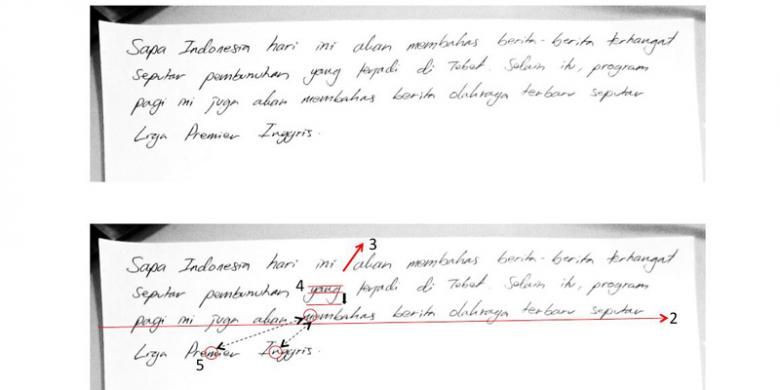 Sapa Indonesia hari ini akan membahas berita-berita terhangat
seputar pembunuhan yang terjadi di Tebet. Selain itu, program
pagi ini juga akan membahas berita olahraga terbaru seputar
Liga Premier Inggris.
3
Sapa Indonesia hari ini akan membahas berita-berita terhangat
4
seputar pembunuhan yang terjadi di Tebet. Selain itu, program
1
pagi ini juga akan membahas berita olahraga terbaru seputar
2
Liga Premier Inggris.
5